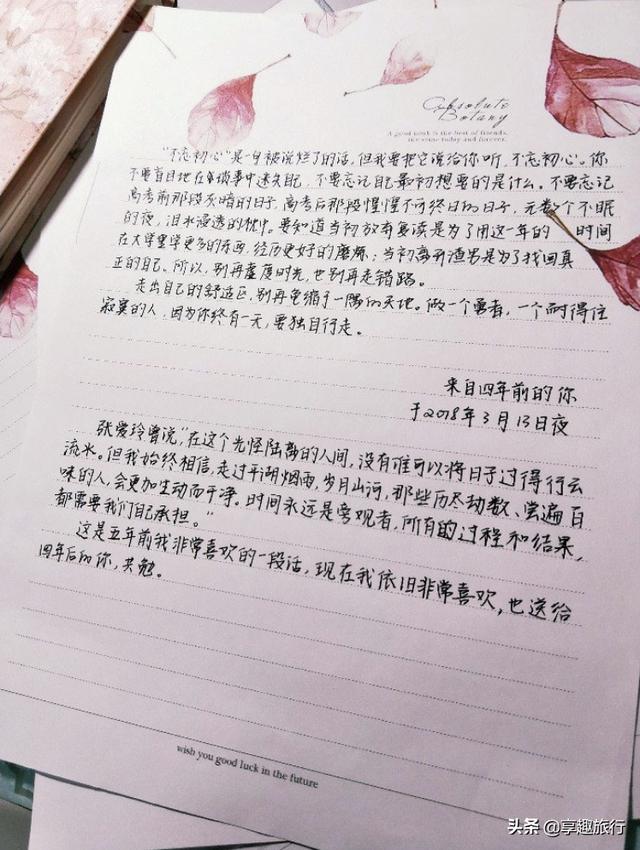 Absolute
Botany
A good book is the best of friends,
the same today and forever.
"不忘初心"是一句被说烂了的话,但我要把它说给你听,不忘初心。你
不要盲目地在琐事中迷失自己,不要忘记自己最初想要的是什么。不要忘记
高考前那段灰暗的日子,高考后那段惶惶不可终日的日子,无数个不眠
的夜,泪水浸透的枕巾。要知道当初放弃复读是为了用这一年的 时间
在大学里学更多的东西,经历更好的磨炼;当初离开渣男是为了找回真
正的自己。所以,别再虚度时光,也别再走错路。
走出自己的舒适区,别再龟缩于一隅的天地。做一个勇者,一个耐得住
寂寞的人,因为你终有一天,要独自行走。
来自四年前的你
于2018年3月13日夜
张爱玲曾说,"在这个光怪陆离的人间,没有谁可以将日子过得行云
流水。但我始终相信,走过平湖烟雨,岁月山河,那些历尽劫数、尝遍百
味的人,会更加生动而干净。时间永远是旁观者,所有的过程和结果,
都需要我们自己承担。"
这是五年前我非常喜欢的一段话,现在我依旧非常喜欢,也送给
四年后的你,共勉。
wish you good luck in the future
头条 @享趣旅行